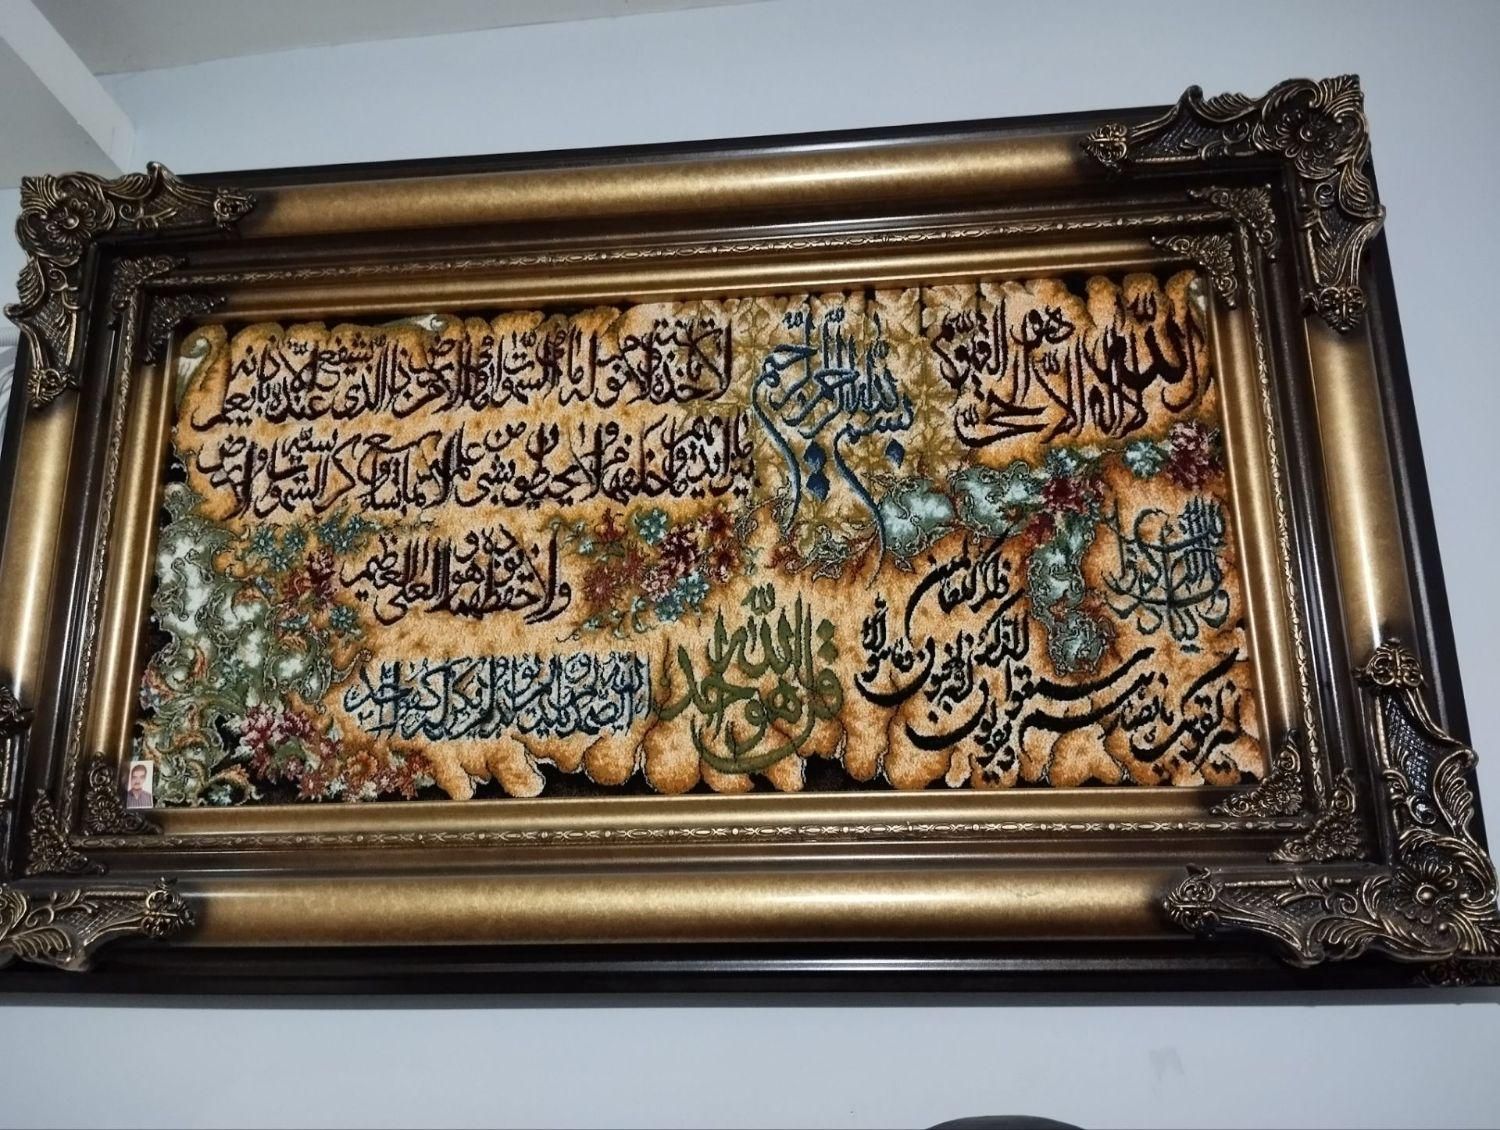 بسم الله الرحمن الرحیم
الله لا اله الا هو الحی القیوم
لا تأخذه سنة ولا نوم له ما فی السموات وما فی الارض من ذا الذی یشفع عنده الا باذنه یعلم
ما بین ایدیهم وما خلفهم ولا یحیطون بشیء من علمه الا بما شاء وسع کرسیه السموات والارض
ولا یؤده حفظهما وهو العلی العظیم
وان یکاد الذین کفروا
لیزلقونک بابصارهم لما سمعوا الذکر
ویقولون انه لمجنون وما هو الا
ذکر للعالمین
قل هو الله احد
الله الصمد لم یلد ولم یولد ولم یکن له کفوا احد